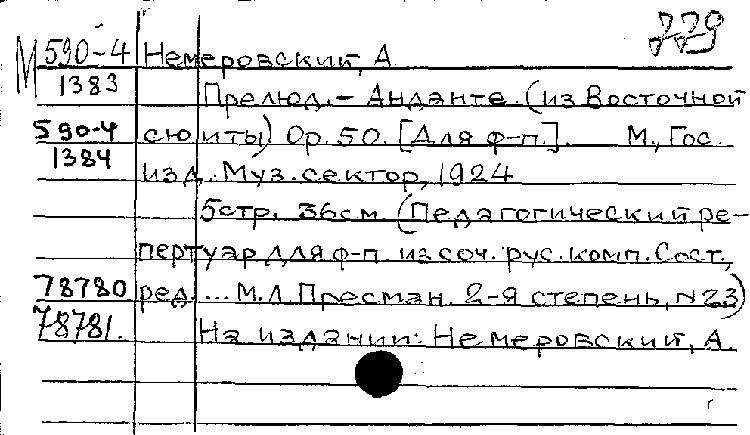 779
М 590-4 Немеровский, А
1383 Прелюд. - Анданте. (из Восточной
590-4 сюиты) Op. 50. [Для ф-п.]. М., Гос.
1384 изд. Муз. сектор, 1924
5 стр. 36 см (Педагогический ре-
пертуар для ф-п. из соч. рус. комп. Сост.,
78780 ред. ... М.Л. Пресман. 2-я степень, N 23)
78781. На издании: Немеровский, А.